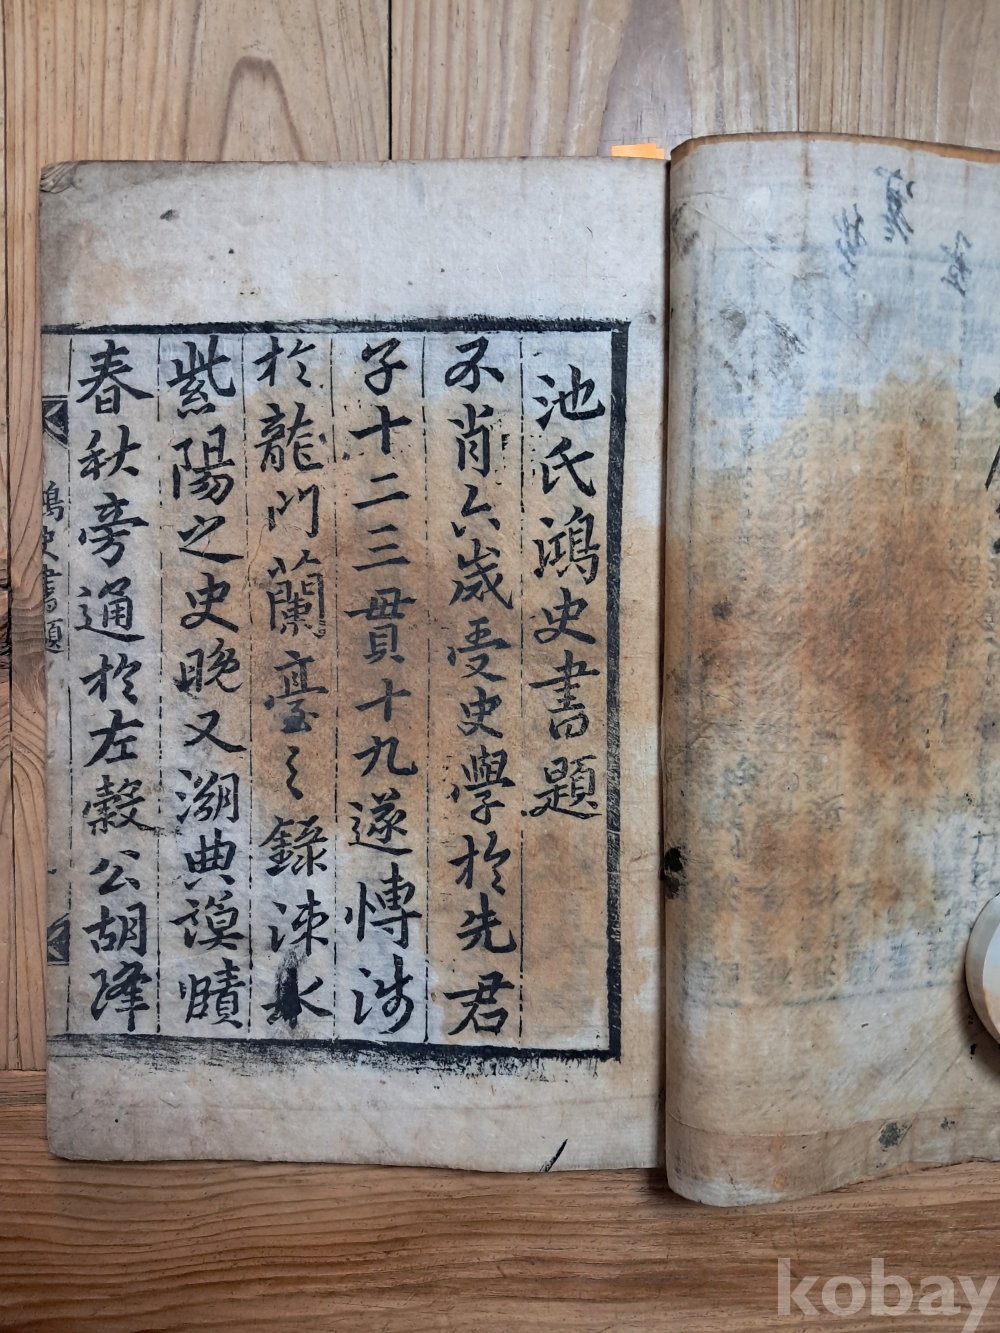 池氏鴻史書題
不肖六歲受史學於先君
子十二三毌貝十九遂慱涉
於龍門蘭臺之錄涑水
紫陽之史晚又溯典謨賾
春秋旁通於左穀公胡降
鴻史書題
kobay